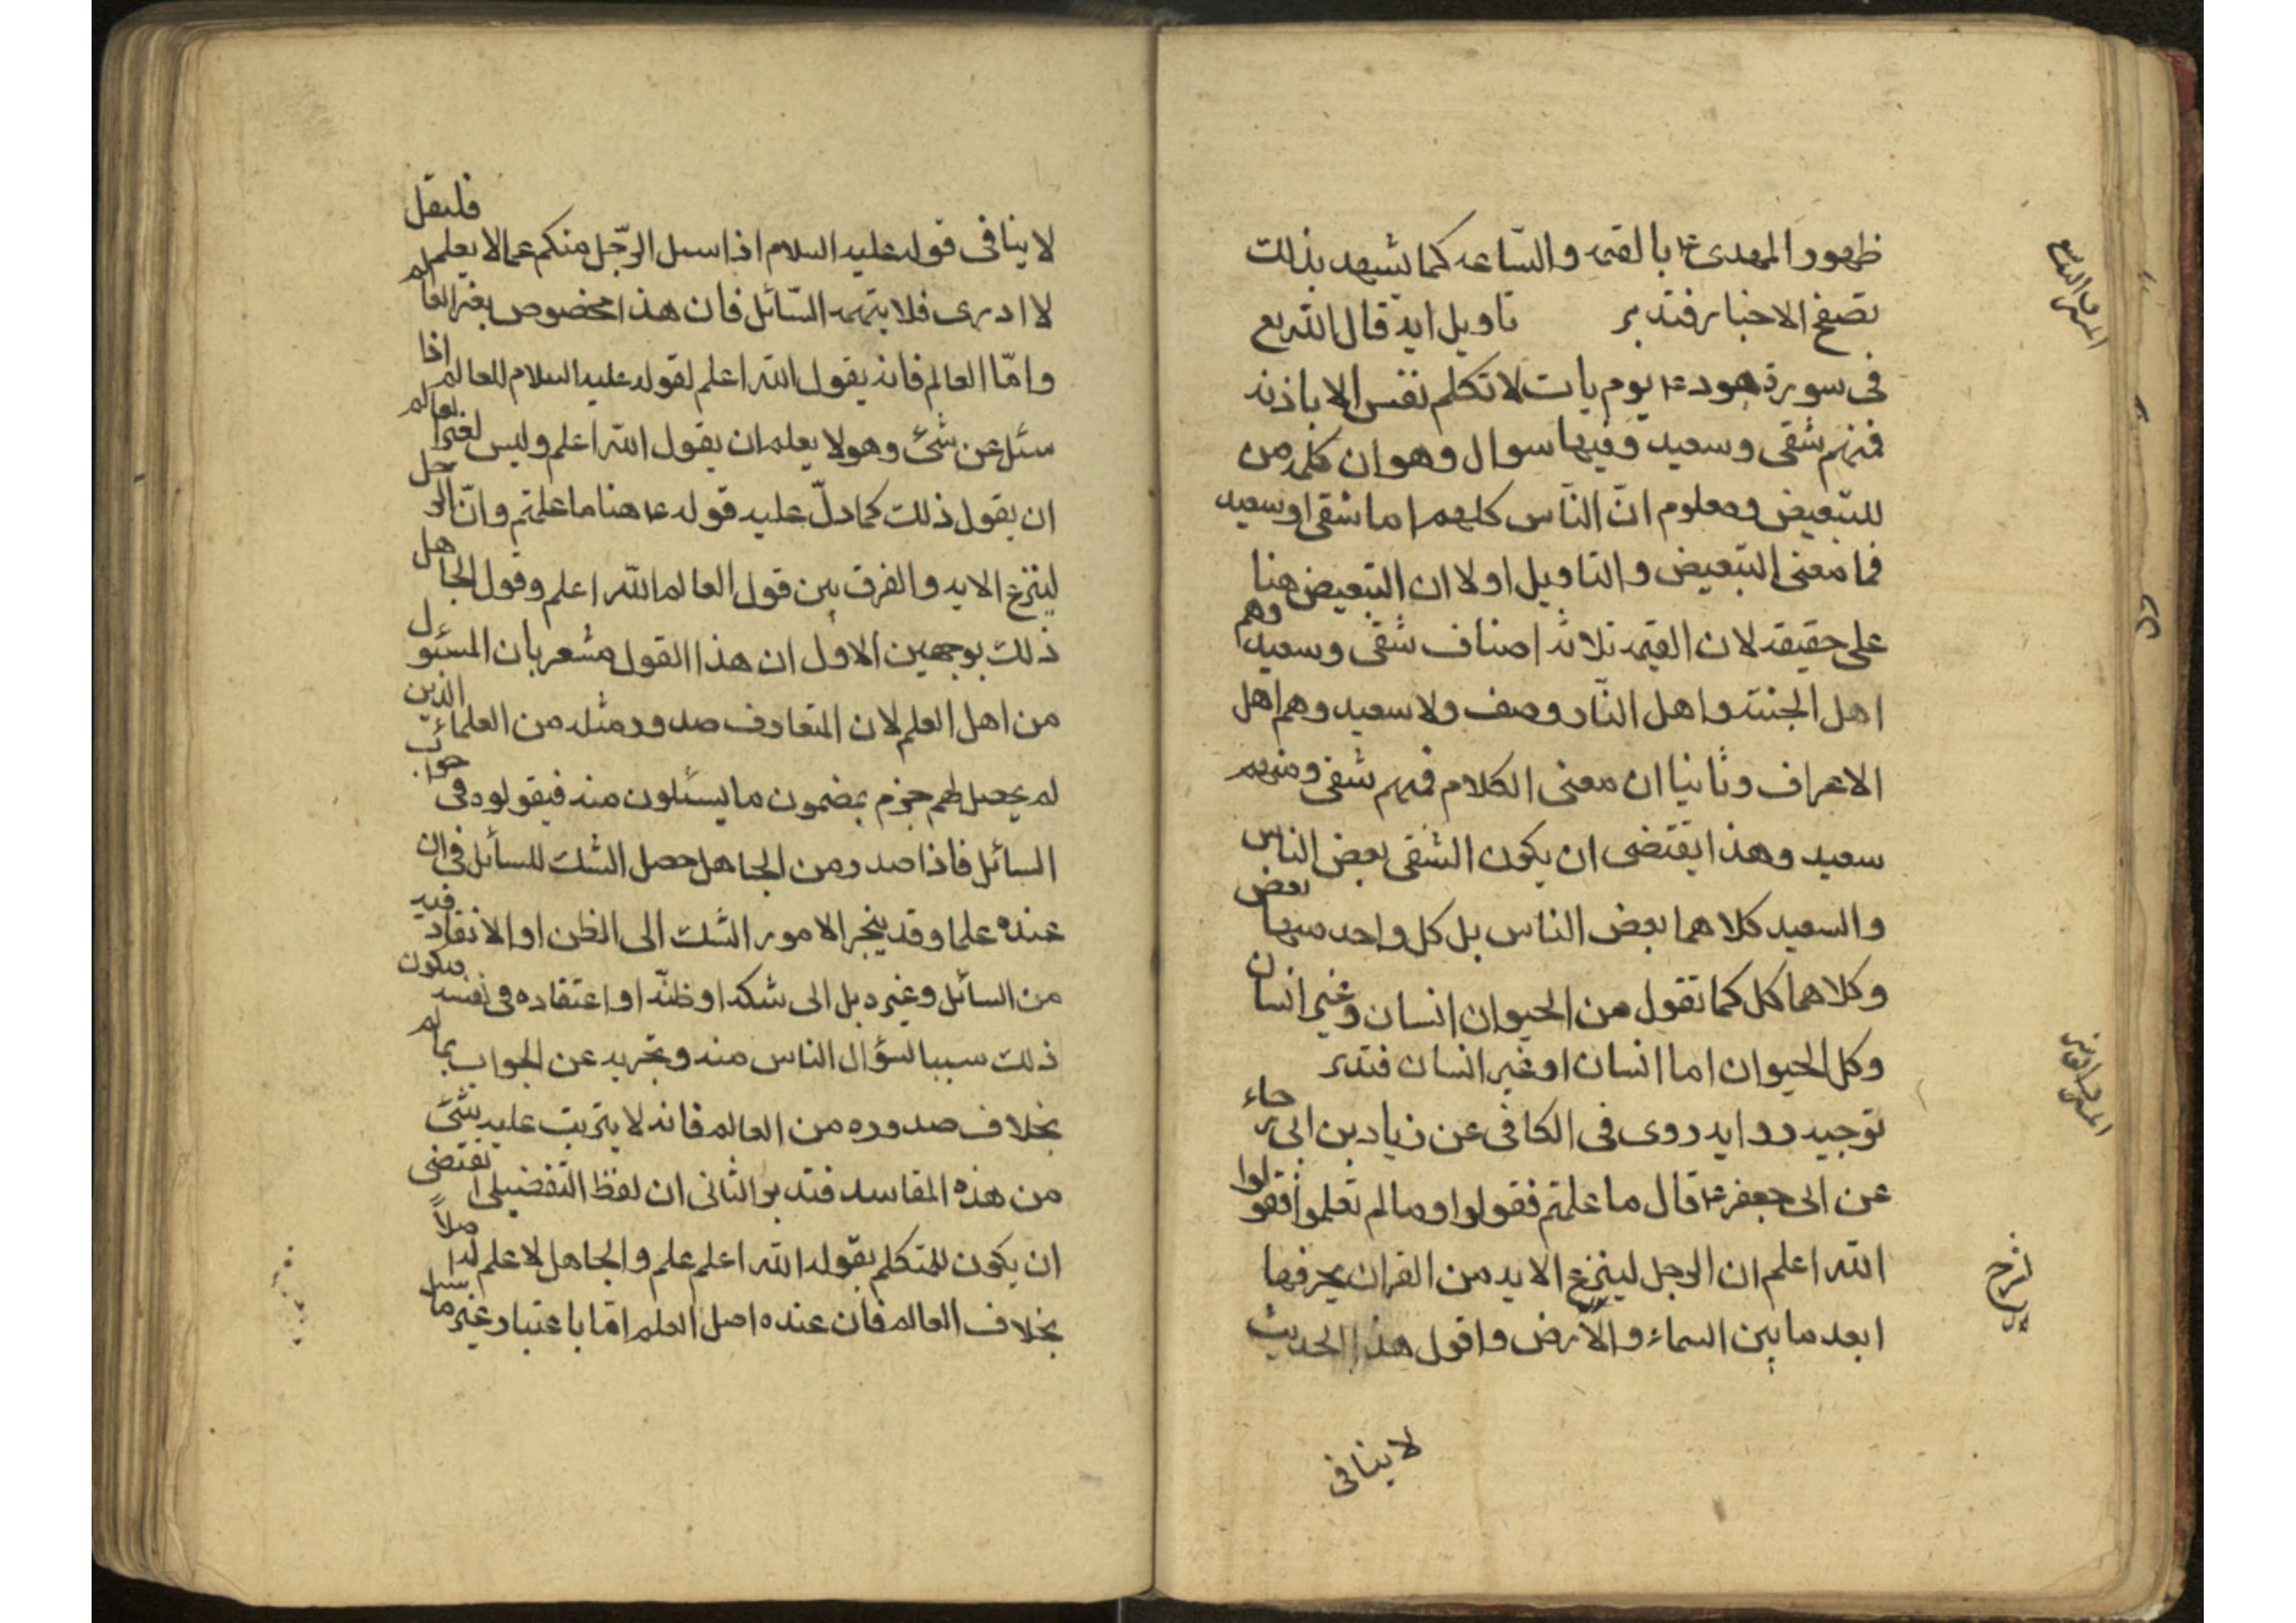 ظهور المهدى ع‍ بالقيمه والساعه كما يشهد بذلك
تصفح الاخبار فتدبر تاويل ايه قال الله تع
فى سورة هود ع‍ يوم يات لا تكلم نفس الا باذنه
فمنهم شقى وسعيد وفيها سوال وهو ان كلمه من
للتبعيض ومعلوم انّ النّاس كلهم اما شقى او سعيد
فما معنى التبعيض والتاويل اولا ان التبعيض هنا
على حقيقه لان القيمه ثلاثه اصناف شقى وسعيد وهم
اهل الجنته واهل النّار وصف ولا سعيد وهم اهل
الاعراف وثانيا ان معنى الكلام فمنهم شقى ومنهم
سعيد وهذا يقتضى ان يكون الشقى بعض الناس
والسعيد كلاهما بعض الناس بل كل واحد منهما بعض
وكلاهما كل كما تقول من الحيوان انسان وغير انسان
وكل الحيوان اما انسان او غير انسان فتدبر
توجيه روايه روى فى الكافى عن زياد بن ابى رجاء
عن ابى جعفر ع‍ قال ما علمتم فقولوا وما لم تعلموا فقولوا
الله اعلم ان الرجل لينزع الايه من القران يخر فيها
ابعد ما بين السماء والارض واقول هذا الحديث
لا ينافى
شرح
لا ينافى قوله عليه السلام اذا سىل الرّجل منكم عما لا يعلم فليقل
لا ادرى فلا يتهمه السّائل فان هذا مخصوص بغير العالم
وامّا العالم فانه يقول الله اعلم لقوله عليه السلام للعالم اذا
سئل عن شئ وهو لا يعلم ان يقول الله اعلم وليس لغير العالم
ان يقول ذلك كما دلّ عليه قوله ع‍ هنا ما علمتم وانّ الرجل
لينزع الايه والفرق بين قول العالم الله اعلم وقول الجاهل
ذلك بوجهين الاول ان هذا القول مشعر بان المسئول
من اهل العلم لان المتعارف صدور مثله من العلماء الذين
لم يحصل لهم جزم بمضمون ما يسئلون منه فيقولوه فى جواب
السائل فاذا صدر من الجاهل حصل الشك للسائل فى ان
عنده علما وقد ينجر الامور الشك الى الظن او الانقاد فيه
من السائل وغيره بل الى شكه او ظنّه او اعتقاده فى نفسه فيكون
ذلك سببا لسؤال الناس منه وتجريه عن الجواب بما لم
بخلاف صدوره من العالم فانه لا يترتب عليه شئ
من هذه المفاسد فتدبر الثانى ان لفظ التفضيل يقتضى
ان يكون للمتكلم بقوله الله اعلم علم والجاهل لا علم له اصلاً
بخلاف العالم فان عنده اصل العلم امّا باعتبار غير ما سىل